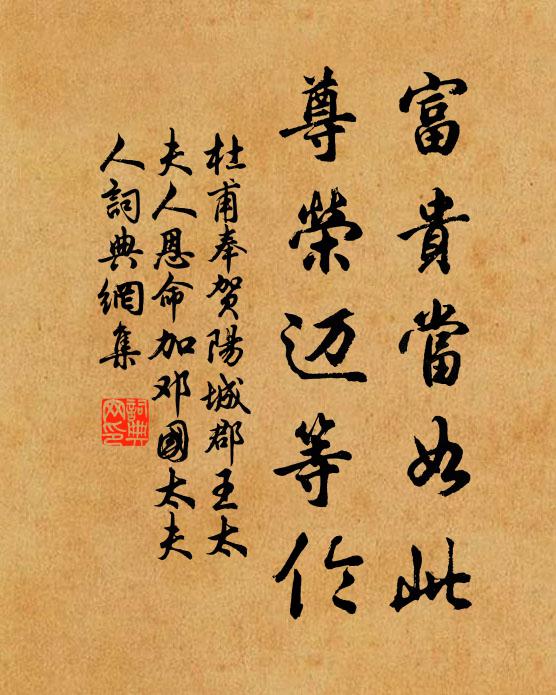 富貴當如此
尊榮迈等伦
杜甫奉贺陽城郡王太
夫人恩命加邓國太夫
人詞典網集
詞典
网印